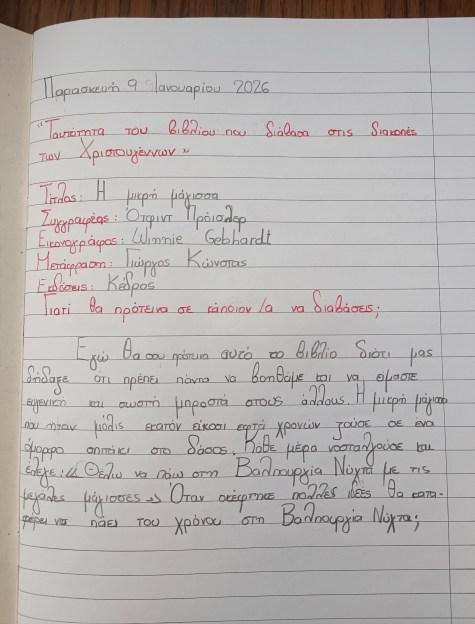 Παρασκευή 9 Ιανουαρίου 2026
"Ταυτότητα του βιβλίου που διάβασα στις διακοπές
των Χριστουγέννων"
Τίτλος: Η μικρή μάγισσα
Συγγραφέας: Ότφριντ Πρόισλερ
Εικονογράφος: Winnie Gebhardt
Μετάφραση: Γιώργος Κώνστας
Εκδόσεις: Κέδρος
Γιατί θα πρότεινα σε κάποιον/α να διαβάσεις;
Εγώ θα σου πρότεινα αυτό το βιβλίο διότι μας
δίδαξε ότι πρέπει πάντα να βοηθάμε και να είμαστε
ευγενική και σωστή μπροστά στους άλλους. Η μικρή μάγισσα
που ήταν μόλις εκατόν είκοσι εφτά χρονών ζούσε σε ένα
όμορφο σπιτάκι στο δάσος. Κάθε μέρα νοσταλγούσε και
έλεγε: « Θέλω να πάω στη Βαλπουργία Νύχτα με τις
μεγάλες μάγισσες » Όταν σκέφτηκε πολλές ιδέες θα κατα-
φέρει να πάει του χρόνου στη Βαλπουργία Νύχτα;